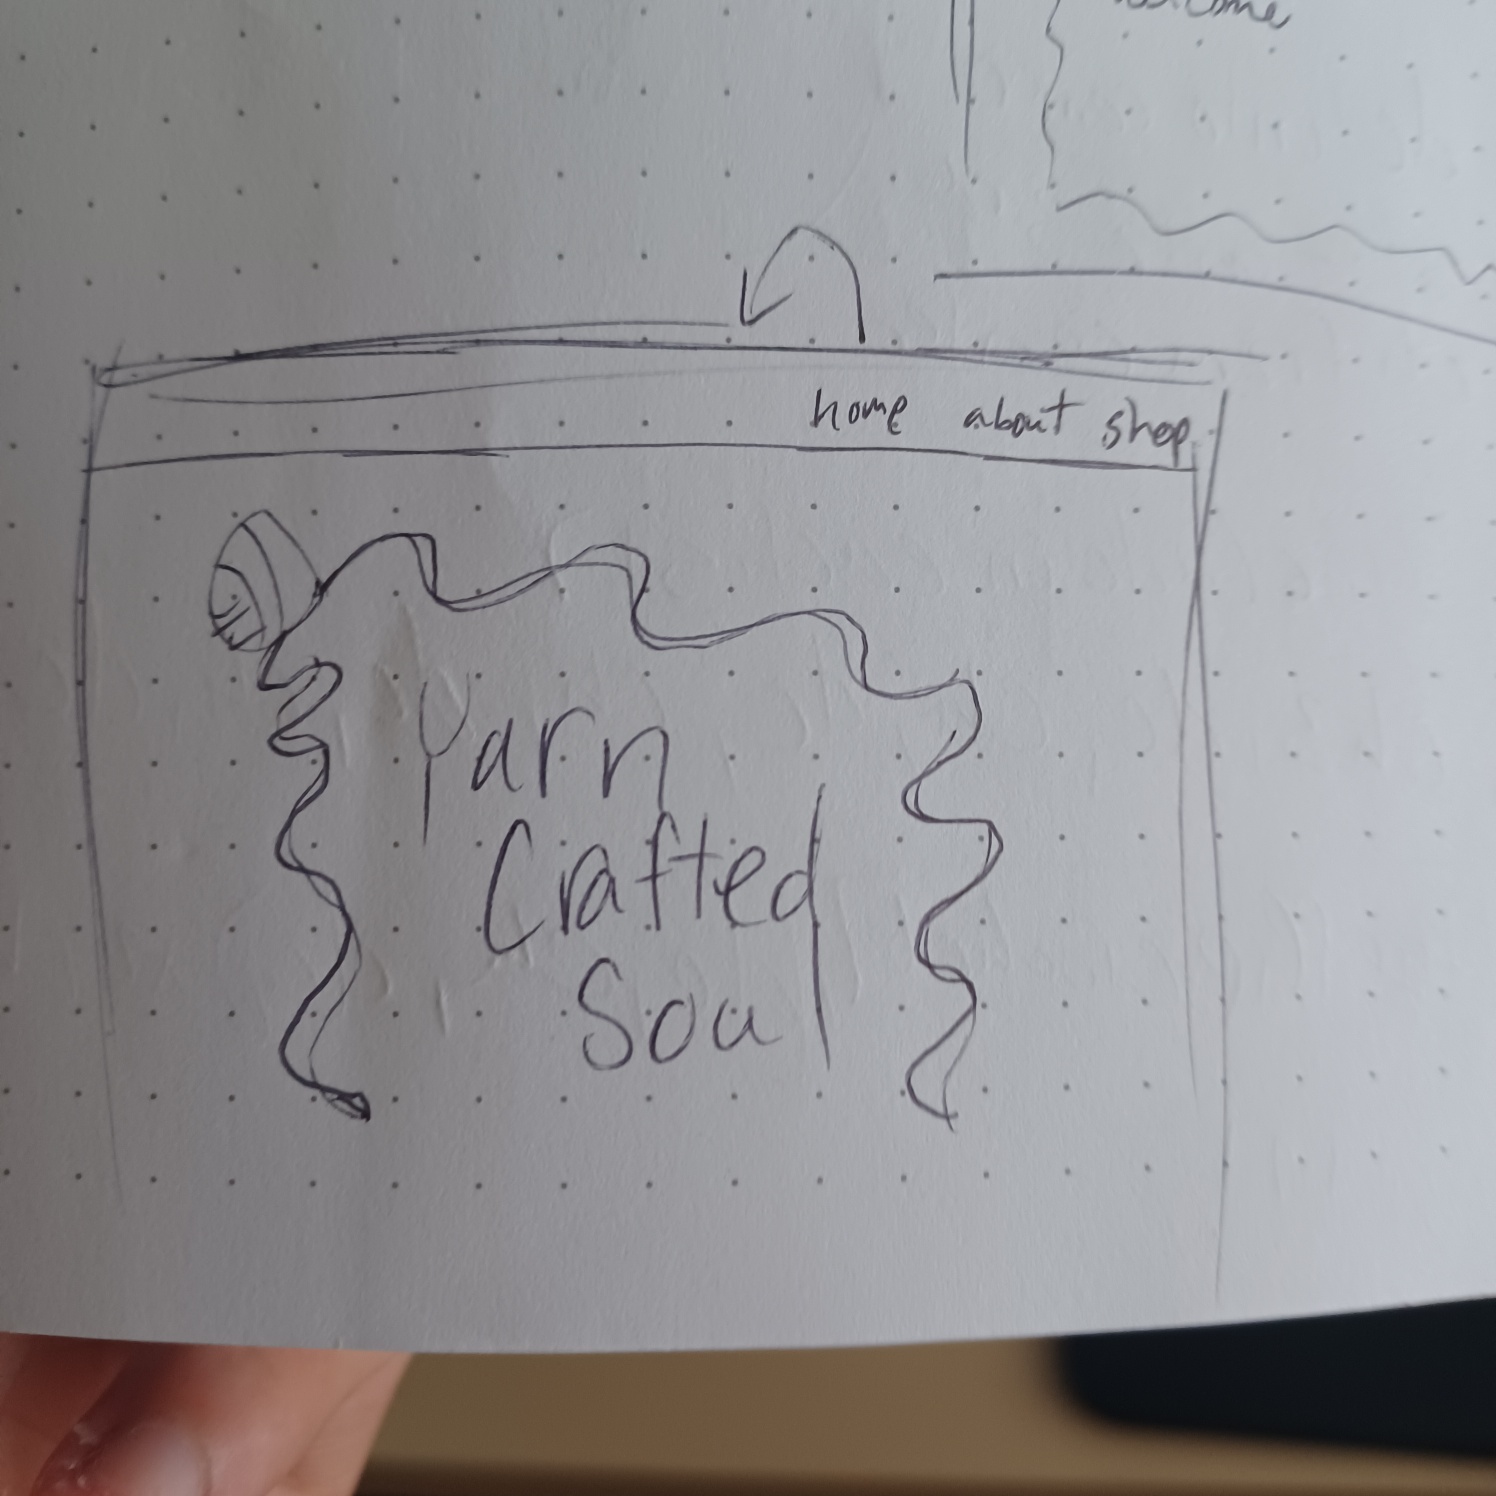 home about shop
Yarn
Crafted
Soul